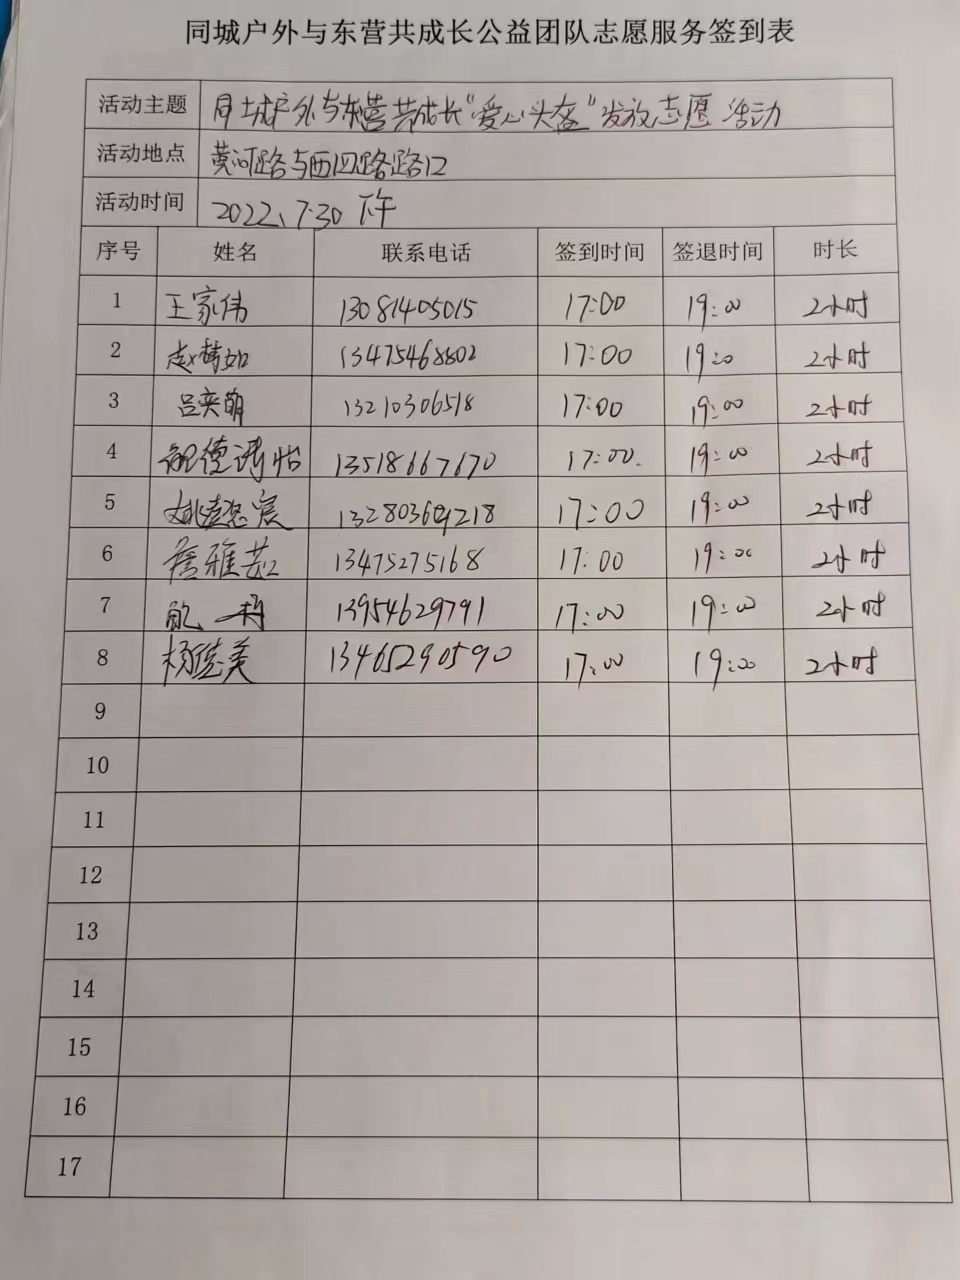 同城户外与东营共成长公益团队志愿服务签到表
活动主题 同城户外与东营共成长"爱心头盔"发放志愿活动
活动地点 黄河路与西四路路口
活动时间 2022、7.30 下午
序号 姓名 联系电话 签到时间 签退时间 时长
1 王家伟 13081405015 17:00 19:00 2小时
2 赵梦如 13475468802 17:00 19:0 2小时
3 吕奕萌 13210306518 17:00 19:00 2小时
4 13518667670 17:00. 19:00 2小时
5 17:00 19:00 2小时
6 13475275168 17:00 19:00 2小时
7 13954629791 17:00 19:00 2小时
8 杨德美 13465290590 17:00 19:00 2小时
9
10
11
12
13
14
15
16
17